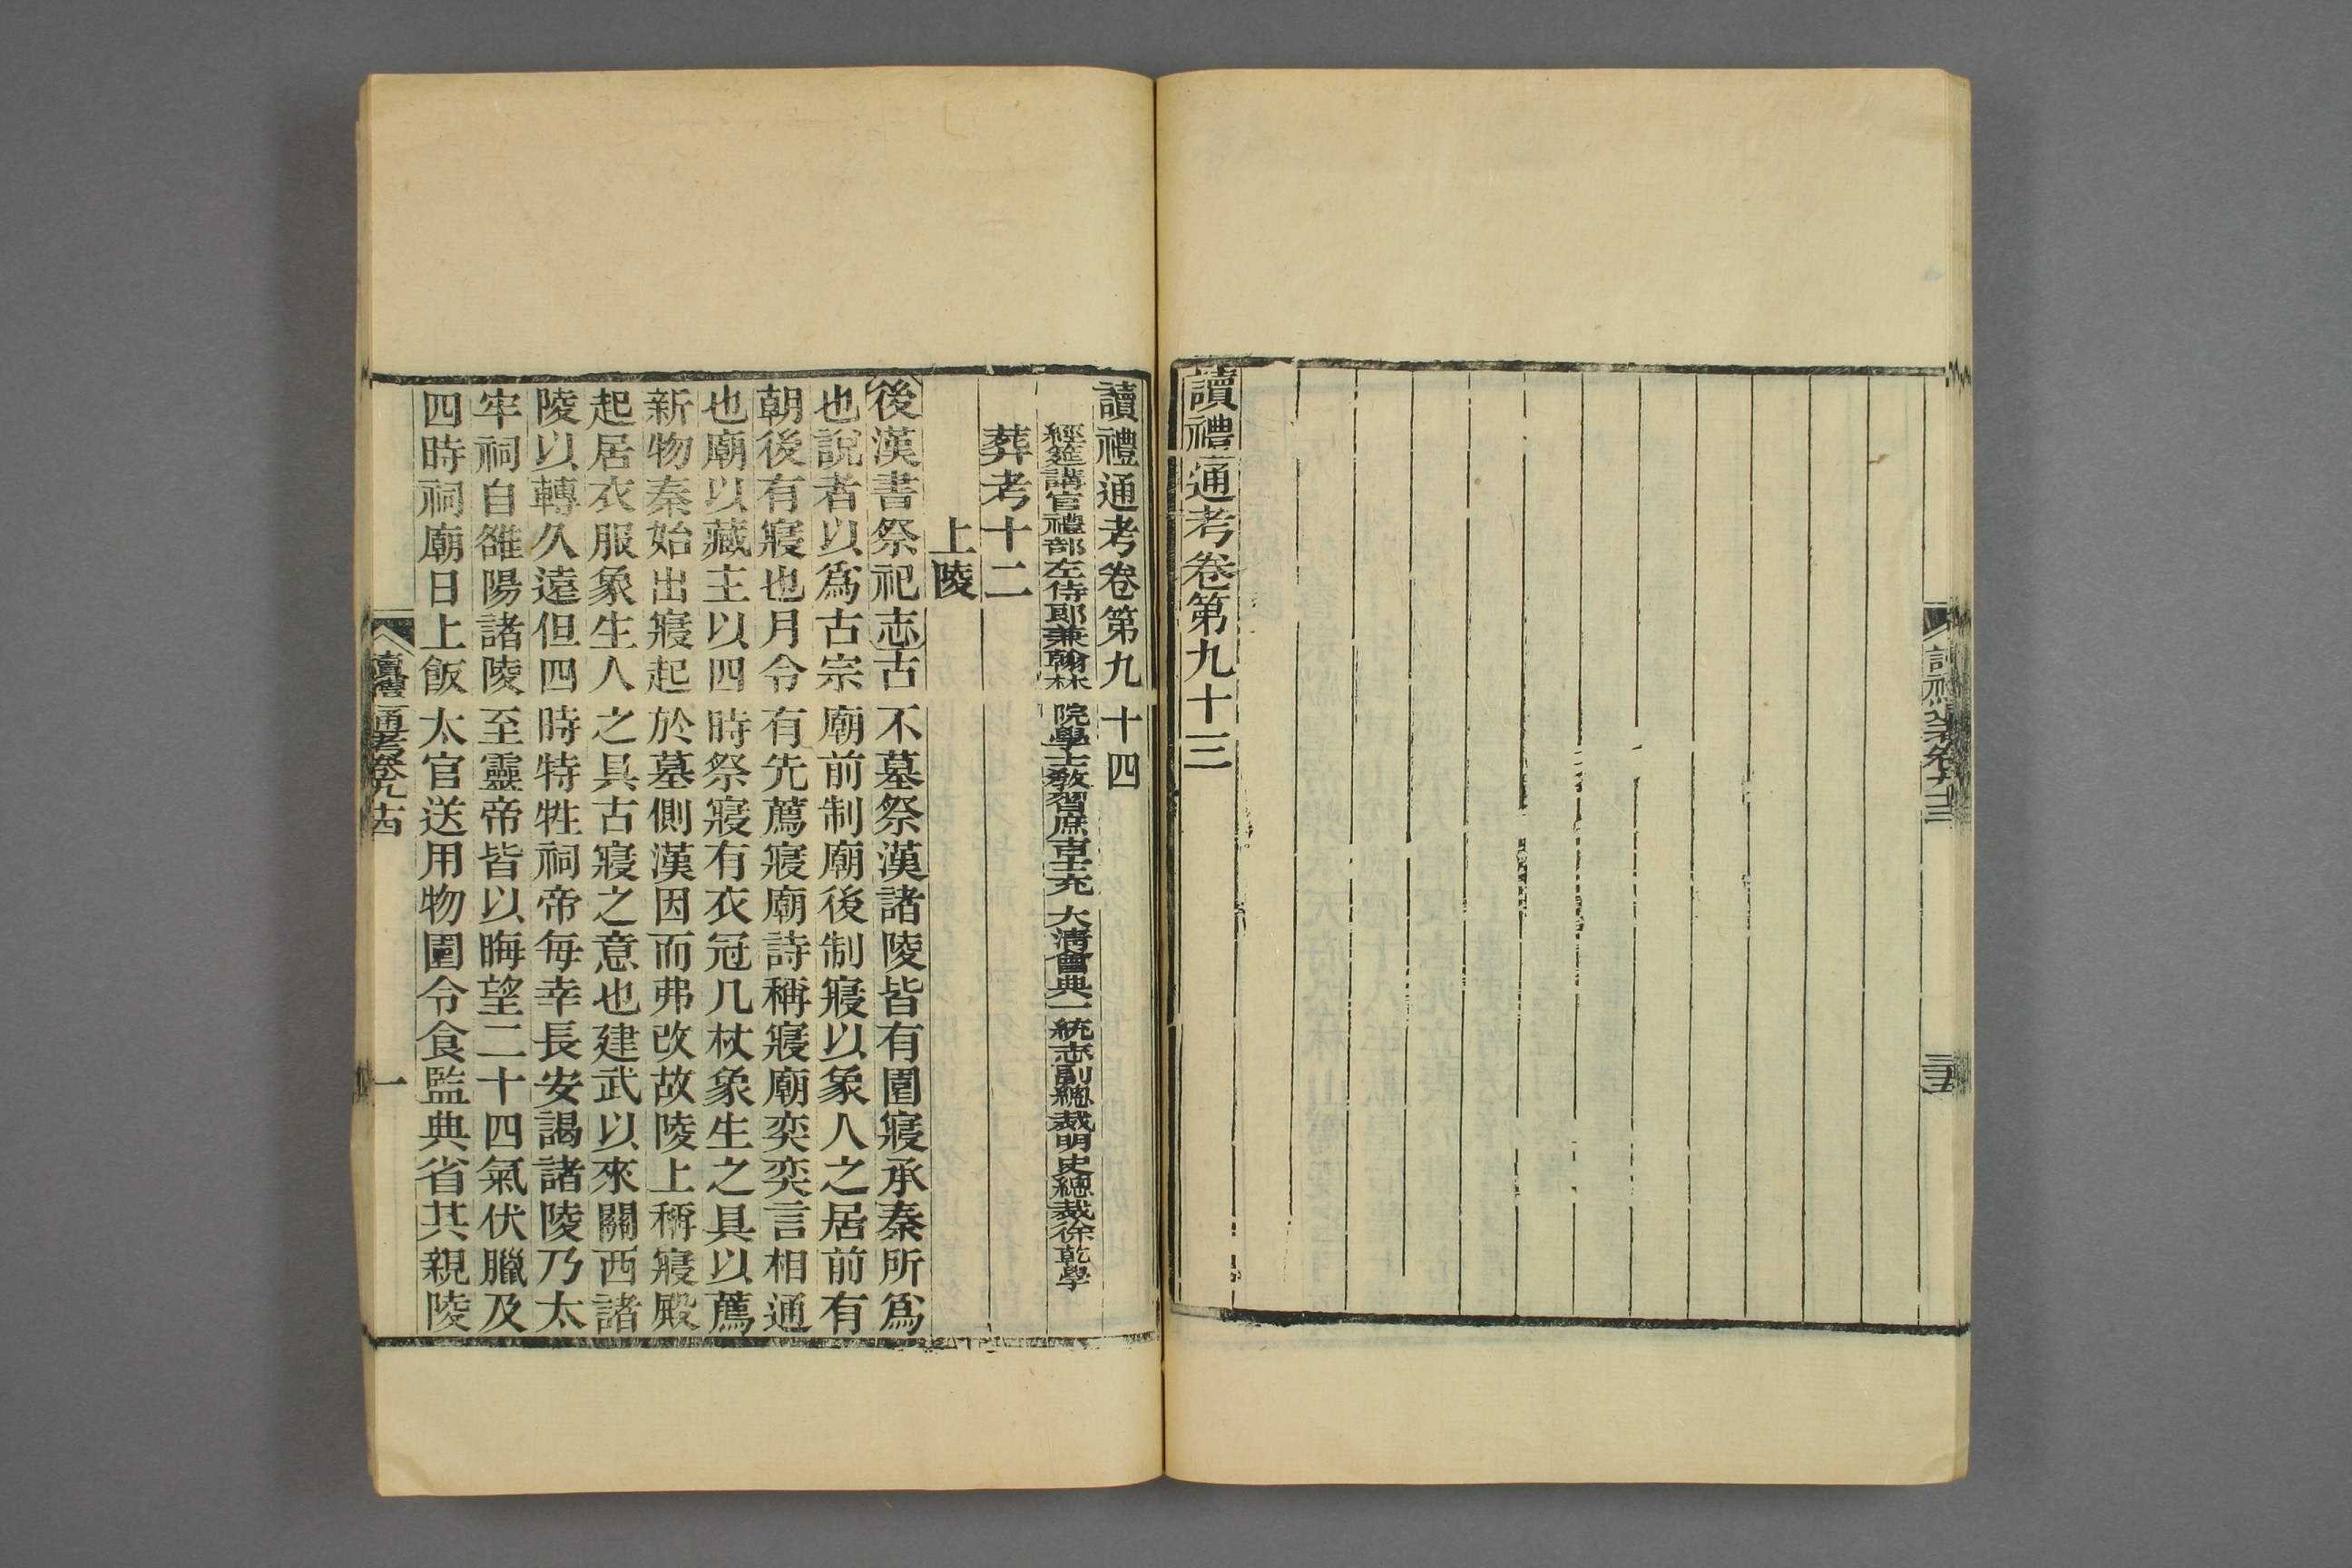 讀禮通考卷九十三
三十五
讀禮通考卷第九十三
讀禮通考卷第九十四
經筵講官禮部左侍郎兼翰林院學士教習庶吉士充大清會典一統志副總裁明史總裁徐乾學
葬考十二
上陵
後漢書祭祀志古不墓祭漢諸陵皆有園寢承秦所爲
也說者以爲古宗廟前制廟後制寢以象人之居前有
朝後有寢也月令有先薦寢廟詩稱寢廟奕奕言相通
也廟以藏主以四時祭寢有衣冠几杖象生之具以薦
新物秦始出寢起於墓側漢因而弗改故陵上稱寢殿
起居衣服象生人之具古寢之意也建武以來關西諸
陵以轉久遠但四時特牲祠帝每幸長安謁諸陵乃太
牢祠自雒陽諸陵至靈帝皆以晦望二十四氣伏臘及
四時祠廟日上飯太官送用物園令食監典省其親陵
讀禮通考卷九十四
一